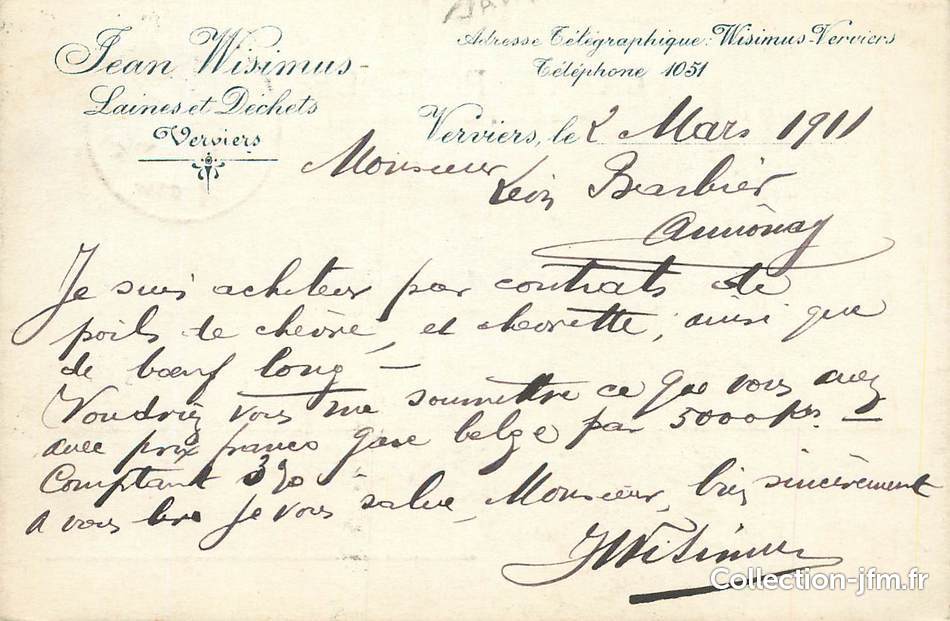 Jean Wisimus
Laines et Déchets
Verviers
Adresse Télégraphique: Wisimus-Verviers
Téléphone 1051
Verviers, le 2 Mars 1911
Monsieur
Léon Barbier
Annonay
Je suis acheteur par contrats de
poils de chèvre, et chevrette, ainsi que
de bœuf long —
Voudriez vous me soumettre ce que vous avez
avec prix franco gare belge par 5000 kgs —
Comptant 3%
A vous lire je vous salue, Monsieur, bien sincèrement
JWisimus
Collection-jfm.fr